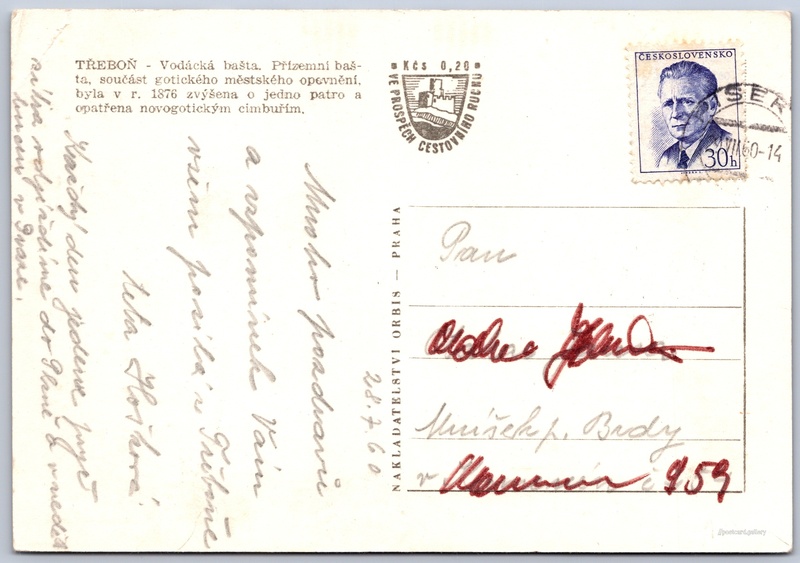 TŘEBOŇ - Vodácká bašta. Přízemní baš-
ta, součást gotického městského opevnění,
byla v r. 1876 zvýšena o jedno patro a
opatřena novogotickým cimbuřím.
Kčs 0,20
VE PROSPĚCH CESTOVNÍHO RUCHU
ČESKOSLOVENSKO
30h
SEK
VII 60-14
NAKLADATELSTVÍ ORBIS — PRAHA
28.7.60
Mnoho pozdravů
a vzpomínek Vám
všem posílá z Třeboně
teta
Každý den jedeme
zítra odjíždíme do v neděli
budem v Praze.
Pan
Mníšek p. Brdy
v 959